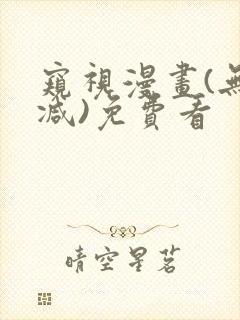 窺視漫畫(無
減)免費看
晴空星茗